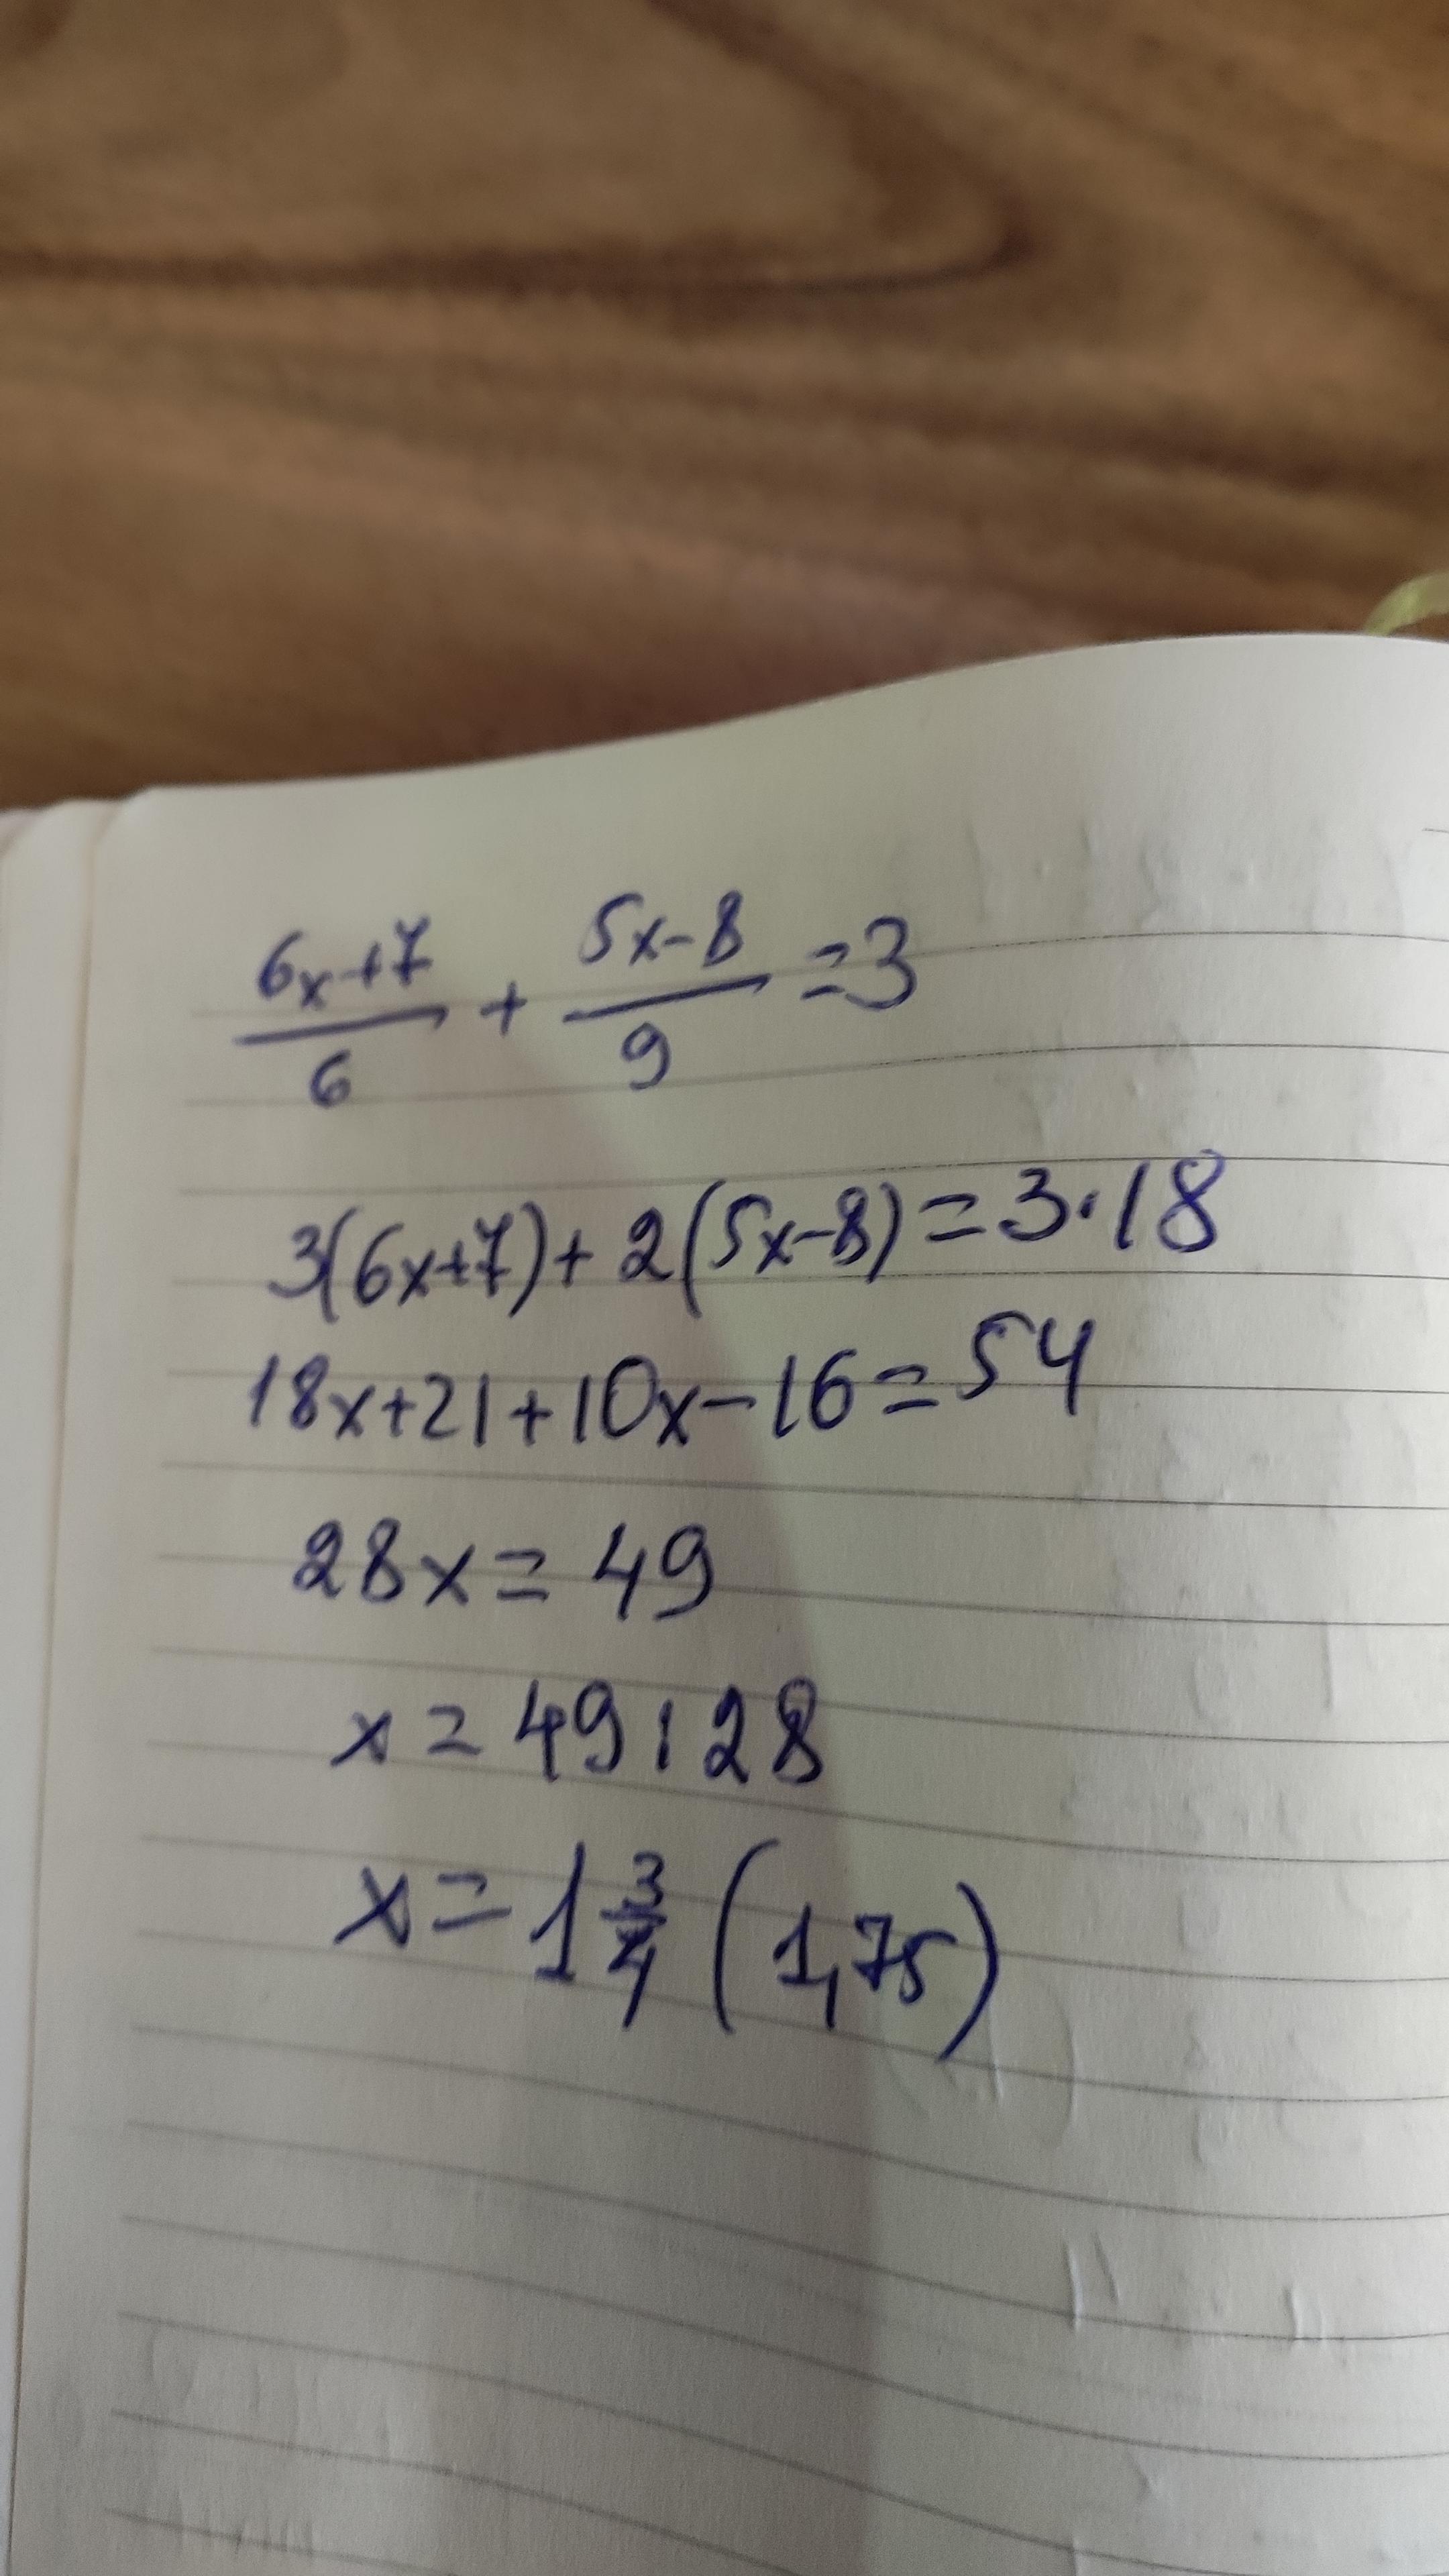 (6x+7)/6 + (5x-8)/9 = 3
3(6x+7)+2(5x-8)=3·18
18x+21+10x-16=54
28x=49
x=49:28
x=1 3/4 (1,75)